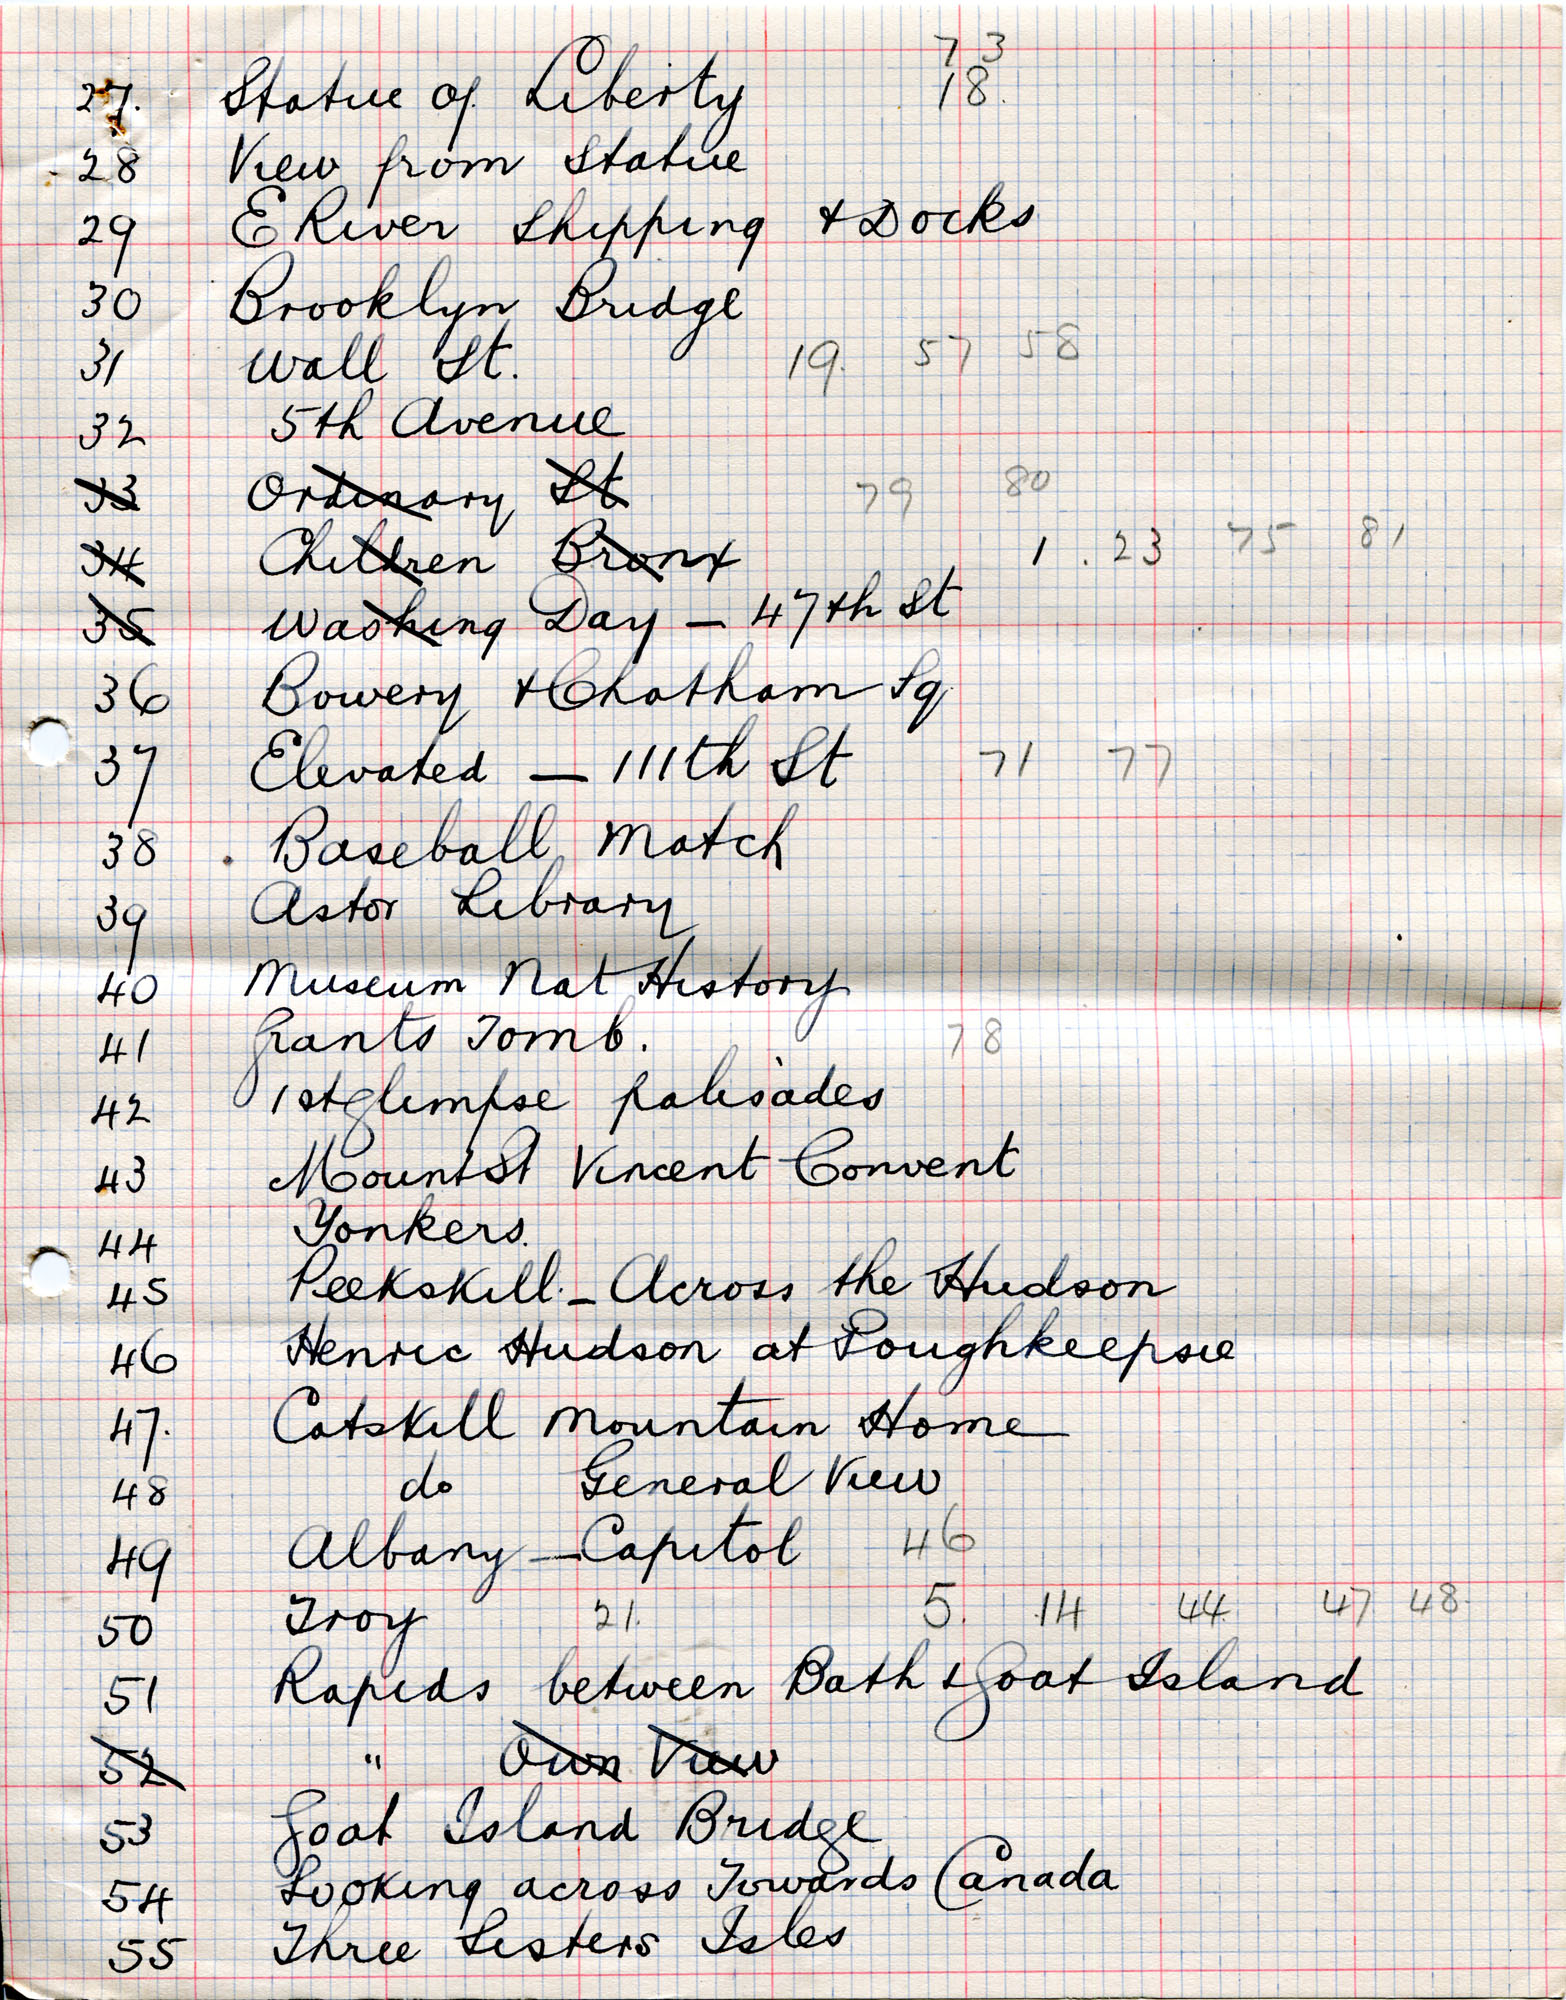 73
27. Statue of Liberty 18.
28 View from Statue
29 E River Shipping + Docks
30 Brooklyn Bridge
31 Wall St. 19. 57 58
32 5th Avenue
33 Ordinary St 79 80
34 Children Bronx 1. 23 75 81
35 Washing Day – 47th St
36 Bowery + Chatham Sq.
37 Elevated – 111th St 71 77
38 Baseball Match
39 Astor Library
40 Museum Nat History
41 Grants Tomb. 78
42 1st glimpse palisades
43 Mount St Vincent Convent
44 Yonkers.
45 Peekskill – Across the Hudson
46 Henric Hudson at Poughkeepsie
47. Catskill Mountain Home
48 do General View
49 Albany – Capitol 46
50 Troy 21. 5. 14 44 47 48
51 Rapids between Bath & Goat Island
52 " Own View
53 Goat Island Bridge
54 Looking across Towards Canada
55 Three Sisters Isles